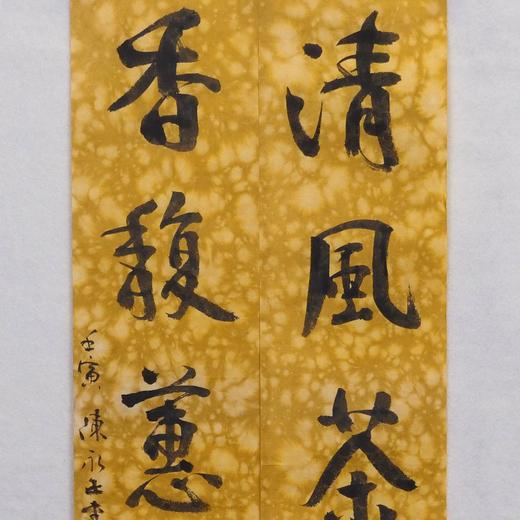 清風茶
香馥蕙
壬寅陳永